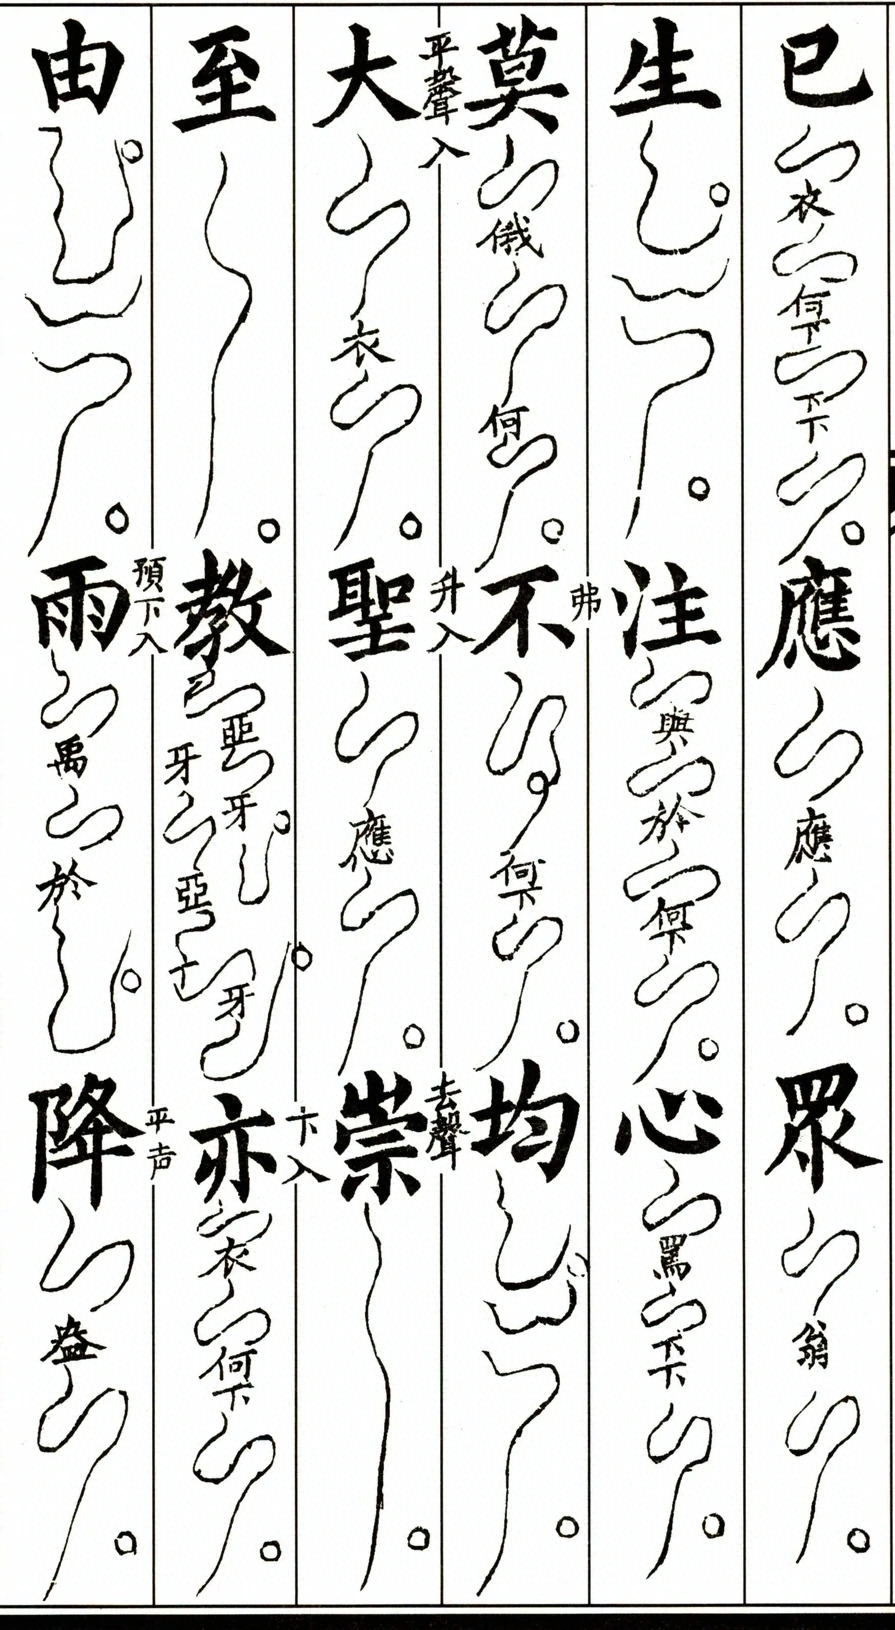 已衣何下下下應應眾翁
生注與於何下心罵下下
莫俄何不何下均
平聲入弗
大衣聖應崇
升入去聲
至教亞牙牙亞牙亦衣何下
卞入
由雨禹於降盎
預下入平声